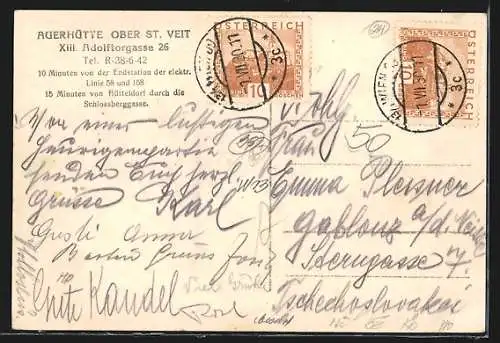 AUERHÜTTE OBER ST. VEIT
XIII. Adolftorgasse 26
Tel. R-38-6-42
10 Minuten von der Endstation der elektr.
Linie 58 und 158
15 Minuten von Hütteldorf durch die
Schlossberggasse.
ÖSTERREICH
10
ÖSTERREICH
10
WIEN
3c
3c
50
Von einer lustigen
Heurigenpartie
senden Euch herzl.
Grüsse Karl
Gusti
Besten Gruss
Grete Kandel
Wohlg.
Frau
Emma Plessner
Gablonz a/d. Neisse
Tschechoslovakei